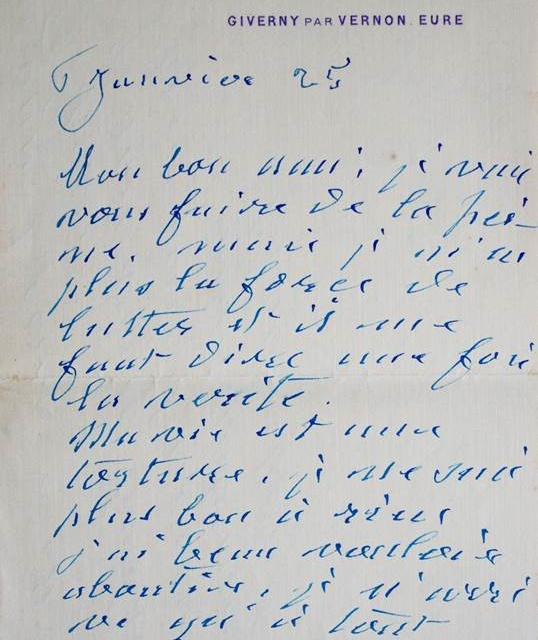 GIVERNY PAR VERNON. EURE
7 Janvier 25
Mon bon ami, je vais
vous faire de la pei-
ne. mais je n'ai
plus la force de
lutter et il me
faut dire une fois
la verité.
Ma vie est une
torture, je ne suis
plus bon à rien
j'ai beau vouloir
aboutir, je n'arri
ve qu'à tout